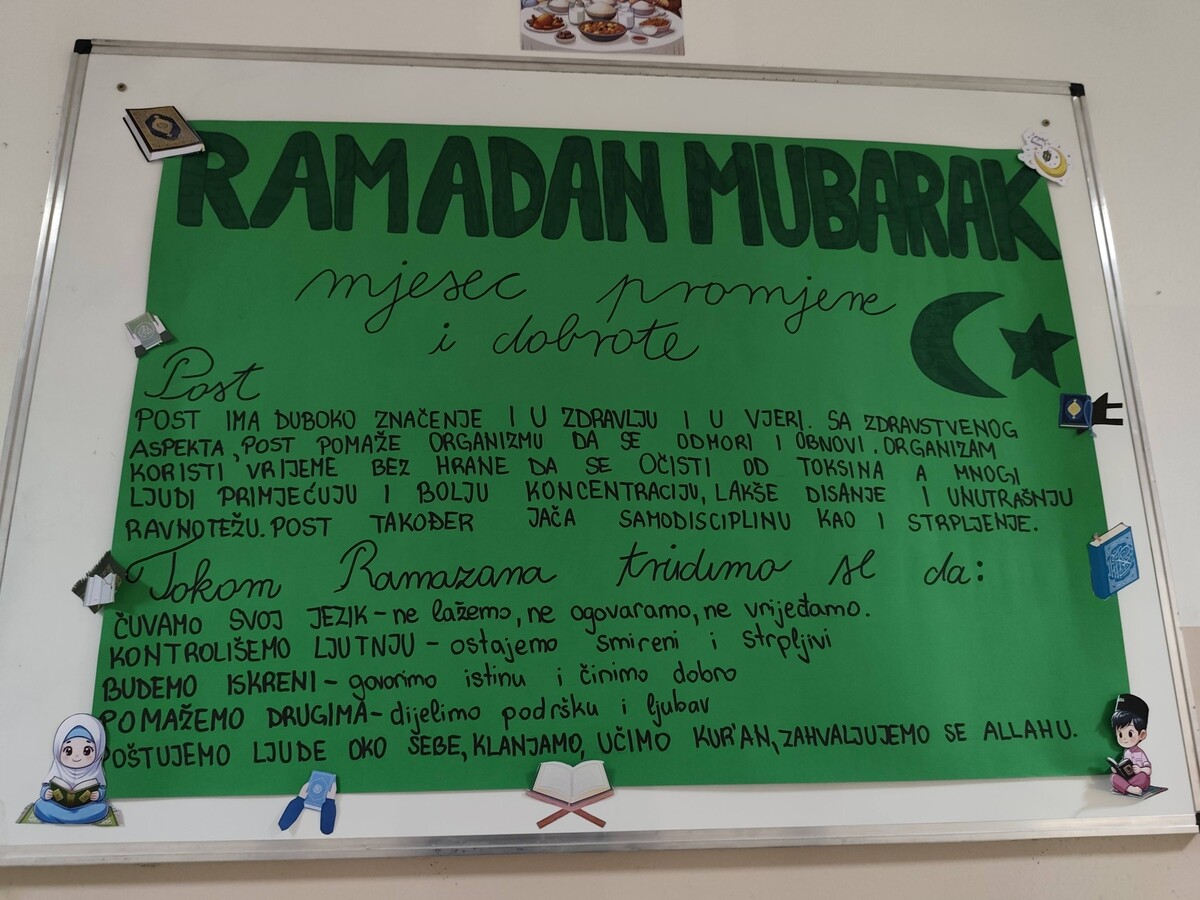 RAMADAN MUBARAK
mjesec promjene
i dobrote
Post
POST IMA DUBOKO ZNAČENJE I U ZDRAVLJU I U VJERI. SA ZDRAVSTVENOG
ASPEKTA, POST POMAŽE ORGANIZMU DA SE ODMORI I OBNOVI. ORGANIZAM
KORISTI VRIJEME BEZ HRANE DA SE OČISTI OD TOKSINA A MNOGI
LJUDI PRIMJEĆUJU I BOLJU KONCENTRACIJU, LAKŠE DISANJE I UNUTRAŠNJU
RAVNOTEŽU. POST TAKOĐER JAČA SAMODISCIPLINU KAO I STRPLJENJE.
Tokom Ramazana trudimo se da:
ČUVAMO SVOJ JEZIK - ne lažemo, ne ogovaramo, ne vrijeđamo.
KONTROLIŠEMO LJUTNJU - ostajemo smireni i strpljivi
BUDEMO ISKRENI - govorimo istinu i činimo dobro
POMAŽEMO DRUGIMA - dijelimo podršku i ljubav
POŠTUJEMO LJUDE OKO SEBE, KLANJAMO, UČIMO KUR'AN, ZAHVALJUJEMO SE ALLAHU.